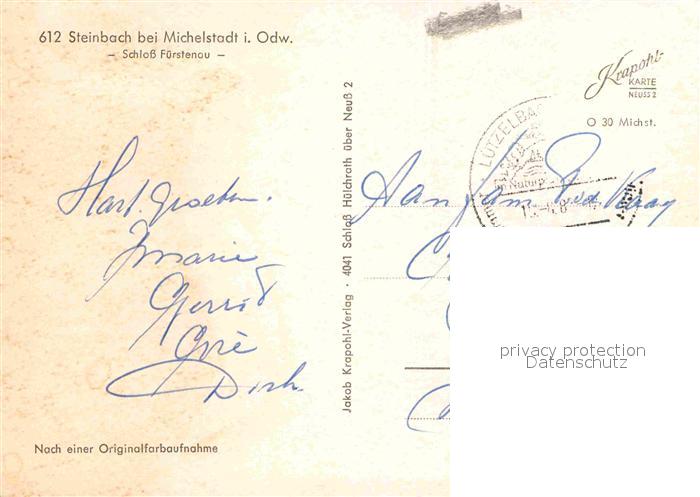 612 Steinbach bei Michelstadt i. Odw.
– Schloß Fürstenau –
Krapohl-
KARTE
NEUSS 2
O 30 Michst.
LÜTZELBA
Hart. groeten.
Marie
Gerrit
Corè
Dirk
Aan fam
Jakob Krapohl-Verlag · 4041 Schloß Hülchrath über Neuß 2
privacy protection
Datenschutz
Nach einer Originalfarbaufnahme